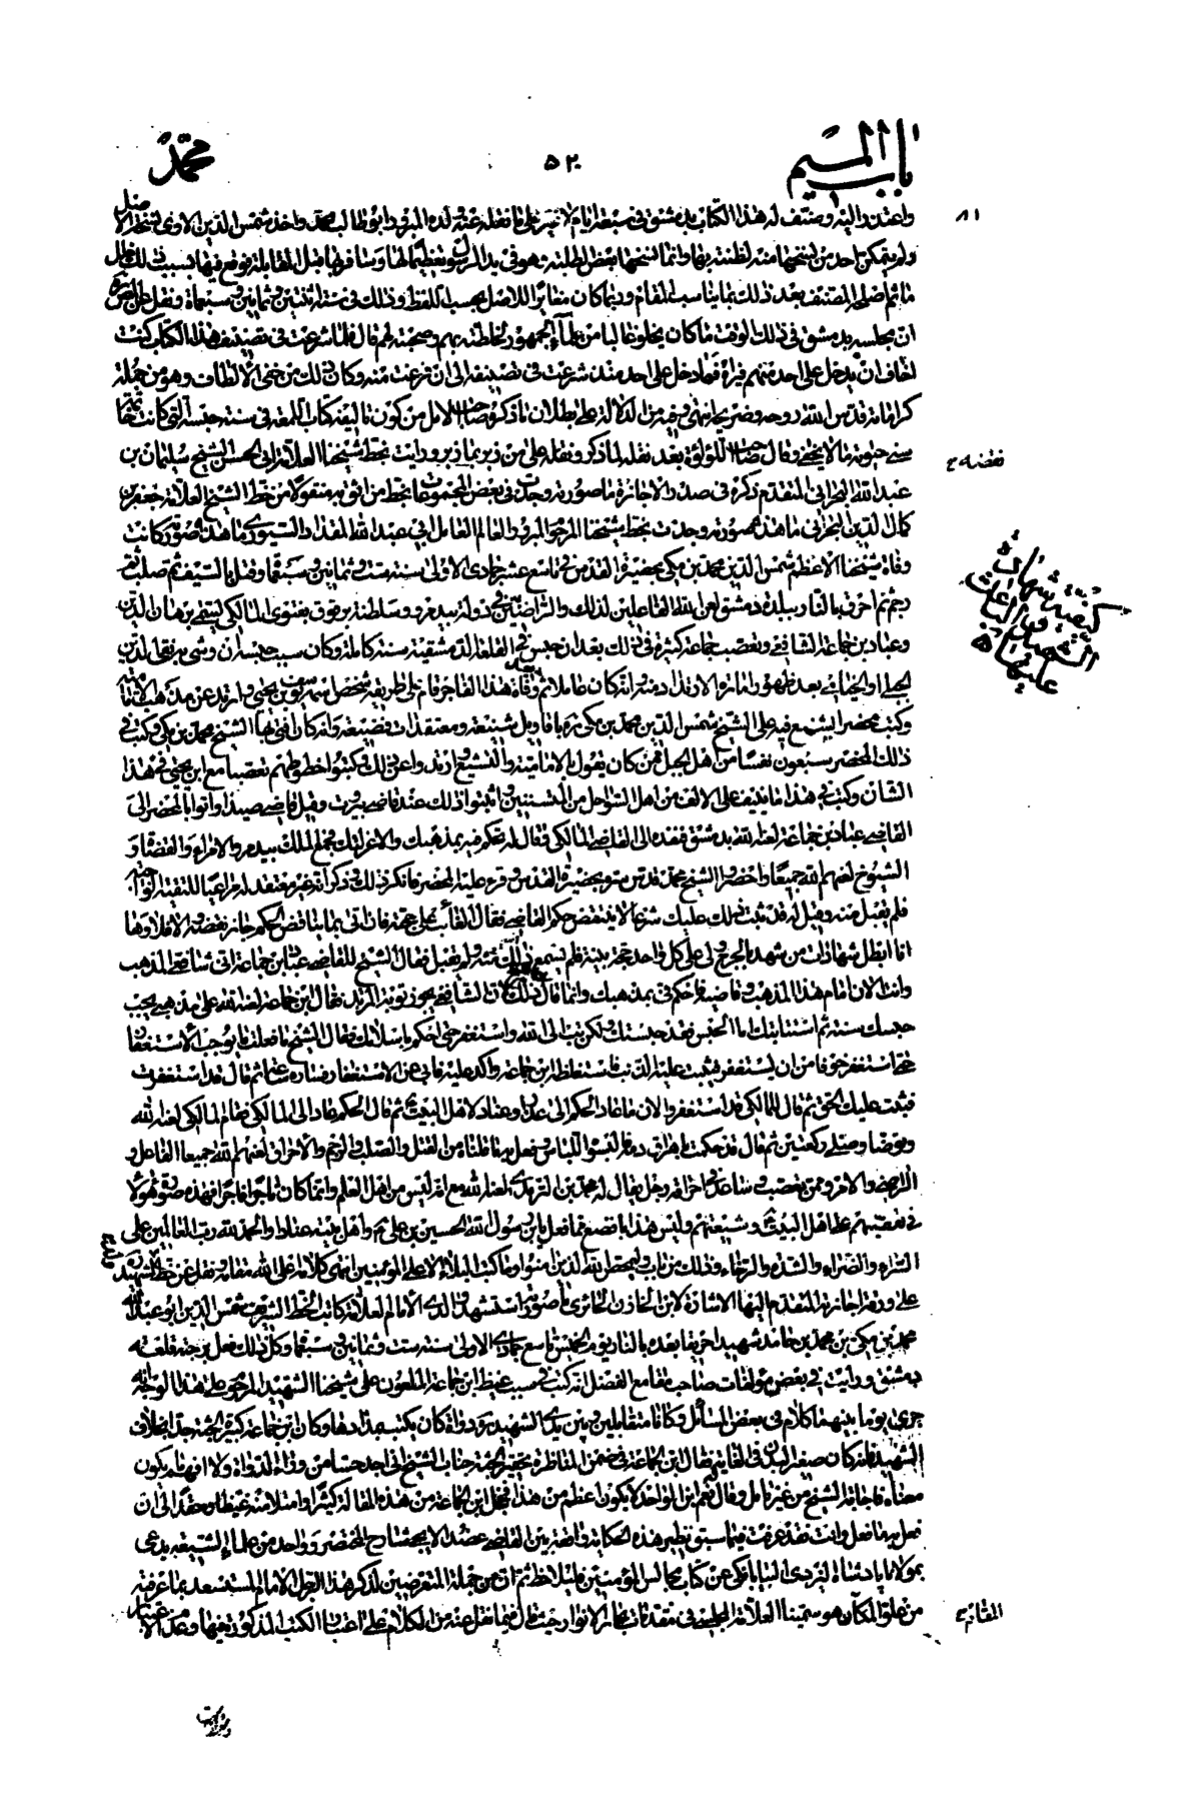 باب الميم ٥٢٠ محمد
واعتذر اليه وصنف له هذا الكتاب بدمشق فى سبعة ايام لا غير على ما نقله عنه ولده المبرور ابو طالب محمد واخذ شمس الدين الاوى نسخة الاصل
ولم يتمكن احد من نسخها منه لضنته بها وانما نسخها بعض الطلبة وهو فى يد الرسول تعظيما لها وسافر بها قبل المقابلة فوقع فيها بسبب ذلك خلل
ما ثم اصلحه المصنف بعد ذلك بما يناسب المقام وربما كان مغايرا للاصل بحسب اللفظ وذلك فى سنة اثنتين وثمانين وسبعمائة ونقل عن
ان مجلسه بدمشق فى ذلك الوقت ما كان يخلو غالبا من علماء الجمهور لخلطته بهم وصحبته لهم قال فلما شرعت فى تصنيف هذا الكتاب كنت
اخاف ان يدخل على احد منهم فيراه فما دخل على احد منذ شرعت فى تصنيفه الى ان فرغت منه وكان ذلك من خفى الالطاف وهو من جملة
كراماته قدس الله روحه وضريحه انتهى وفيه من الدلالة على بطلان ما ذكره صاحب الامل من كون تاليفه كتاب اللمعة فى سنة حبسه التى كانت
سنى حيوته ما لا يخفى وقال صاحب اللؤلؤة بعد نقله لما ذكر ونقله على من زبر بما زبر ورايت بخط شيخنا العلامة ابى الحسن الشيخ سليمان بن
عبد الله البحرانى المتقدم ذكره فى صدر الاجازة ما صورته وجدت فى بعض المجموعات بخط من اثق به منقولا من خط الشيخ العلامة جعفر بن
كمال الدين البحرانى ما هذه صورته وجدت بخط شيخنا المرحوم المبرور العالم العامل ابى عبد الله المقداد السيورى ما هذه صورته كانت
وفاة شيخنا الاعظم شمس الدين محمد بن مكى بحضيرة القدس فى تاسع عشر جمادى الاولى سنة ست وثمانين وسبعمائة قتل بالسيف ثم صلب ثم
رجم ثم احرق بالنار ببلدة دمشق لعن الله الفاعلين لذلك والراضين به فى دولة بيدمرو وسلطنة برقوق بفتوى المالكى يسمى برهان الدين
وعباد بن جماعة الشافعى وتعصب جماعة كثيرة فى ذلك بعد ان حبس فى القلعة الدمشقية سنة كاملة وكان سبب حبسه ان وشى به تقى الدين
الجبلى او الخيامى بعد ظهور امارة الارتداد منه وانه كان عاملا ثم بعد وفاة هذا الفاجر قام على طريقه شخص اسمه يوسف بن يحيى وارتد عن مذهب الامامية
وكتب محضرا يشنع فيه على الشيخ شمس الدين محمد بن مكى ره باقاويل شنيعة ومعتقدات فضيعة وانه كان افتى بها الشيخ محمد بن مكى وكتب فى
ذلك المحضر سبعون نفسا من اهل الجبل ممن كان يقول بالامامية والتشيع وارتد واعن ذلك وكتبوا خطوطهم تعصبا مع ابن يحيى فى هذا
الشان وكتب فى هذا ما ينيف على الالف من اهل السواحل من المتسننين واثبتوا ذلك عند قاضى بيروت وقيل قاضى صيدا واتوا بالمحضر الى
القاضى عباد بن جماعة لعنه الله بدمشق فنفذه الى القاضى المالكى فقال له تحكم فيه بمذهبك والا عزلتك فجمع الملك بيدمر والامراء والقضاة و
الشيوخ لعنهم الله جميعا واحضروا الشيخ محمد قدس سره بحضيرة القدس وقرء عليه المحضر فانكر ذلك وذكر انه غير معتقد له مراعيا للتقية الواجبة
فلم يقبل منه وقيل له قد ثبت ذلك عليك شرعا لا ينتقض حكم القاضى فقال الغائب على حجته فان اتى بما يناقض الحكم جاز نقضه والا فلا وها
انا ابطل شهادات من شهد بالجرح ولى على كل واحد حجة بينة فلم يسمع ذلك منه ولم يقبل فقال الشيخ للقاضى عباد بن جماعة انى شافعى المذهب
وانت الان امام هذا المذهب وقاضيه فاحكم فى بمذهبك وانما قال ذلك لان الشافعى يجوز توبة المرتد فقال ابن جماعة لعنه الله على مذهبى يجب
حبسك سنة ثم استتابتك اما الحبس فقد حبستك ولكن تب الى الله واستغفر حتى احكم باسلامك فقال الشيخ ما فعلت ما يوجب الاستغفار
حتى استغفر خوفا من ان يستغفر فيثبت عليه الذنب فاستغلظ ابن جماعة واكد عليه فابى عن الاستغفار فساره ساعة ثم قال قد استغفرت
فثبت عليك الحق ثم قال للمالكى قد استغفر والان ما عاد الحكم الى غدرا وعنادا لاهل البيت ع ثم قال الحكم عاد الى المالكى فقام المالكى لعنه الله
وتوضا وصلى ركعتين ثم قال قد حكمت باهراق دمه فالبسوه اللباس وفعل به ما قلناه من القتل والصلب والرجم والاحراق لعنهم الله جميعا الفاعل و
الراضى والامر وممن تعصب وساعد فى احراقه رجل يقال له محمد بن الترمذى لعنه الله مع انه ليس من اهل العلم وانما كان تاجرا فاجرا فهذه صورة هؤلاء
فى تعصبهم على اهل البيت ع وشيعتهم وليس هذا بافضع مما فعل بابن رسول الله الحسين بن على ع واهل بيته عنادا والحمد لله رب العالمين على
السراء والضراء والشدة والرخاء وذلك من باب وليمحص الله الذين امنوا وما كتب البلاء الا على المؤمنين انتهى كلامه على الله مقامه ونقل عن خط الشهيد
على ورقة اجازته المتقدم اليها الاشارة لابن الخازن الحائرى ما صورته استشهد والدى الامام العلامة كاتب الخط الشريف شمس الدين ابو عبد الله
محمد بن مكى بن محمد بن حامد شهيدا حريقا بعده بالنار يوم الخميس تاسع جمادى الاولى سنة ست وثمانين وسبعمائة وكل ذلك فعل برحبة قلعة
دمشق ورايت فى بعض مؤلفات صاحب مقامع الفضل انه كتب فى سبب غيظ ابن جماعة الملعون على شيخنا الشهيد المرحوم على هذا الوجه انه
جرى يوما بينهما كلام فى بعض المسائل وكانا متقابلين وبين يدى الشهيد ره دواة كان يكتب بمدادها وكان ابن جماعة كبير الجثة جدا بخلاف
الشهيد فانه كان صغير البدن فى الغاية فقال ابن الجماعة فى ضمن المناظرة تحقيرا لجثة جناب الشيخ انى اجد حسا من وراء الدواة ولا افهم ما يكون
معناه فاجابه الشيخ من غير تامل وقال نعم ابن الواحد لا يكون اعظم من هذا فخجل ابن الجماعة من هذه المقالة كثيرا وامتلا منه غيظا وحقدا الى ان
فعل به ما فعل وانت فقد عرفت فيما سبق نظير هذه الحكاية واقعة بين القاضى عضد الايجى شارح المختصر وواحد من علماء الشيعة يدعى
بمولانا پادشاه اليزدى النيابانكى عن كتاب مجالس المؤمنين فليلاحظ ثم ان من جملة المتعرضين لذكر هذا الرجل الامام المستسعد بما عرفته
من علو المكان هو سمينا العلامة المجلسى فى مقدمات بحار الانوار حيث قال فيما نقل عنه من الكلام على اعتبار الكتب المذكورة فيها وعدم الاعتبار
نقضه ع
كيفية شهادة
الشهيد رضوان الله
عليهما
المقام ع